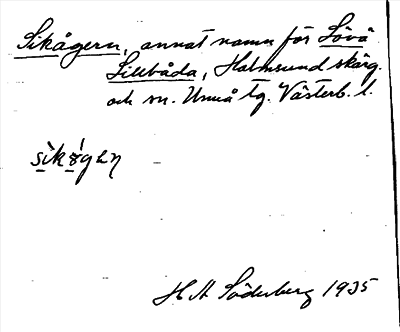 Sikågern, annat namn för Lövö
Lillbåda, Holmsund skärg.
och sn. Umeå tg. Västerb. l.
sìkǿgɛη
H A Söderberg 1935